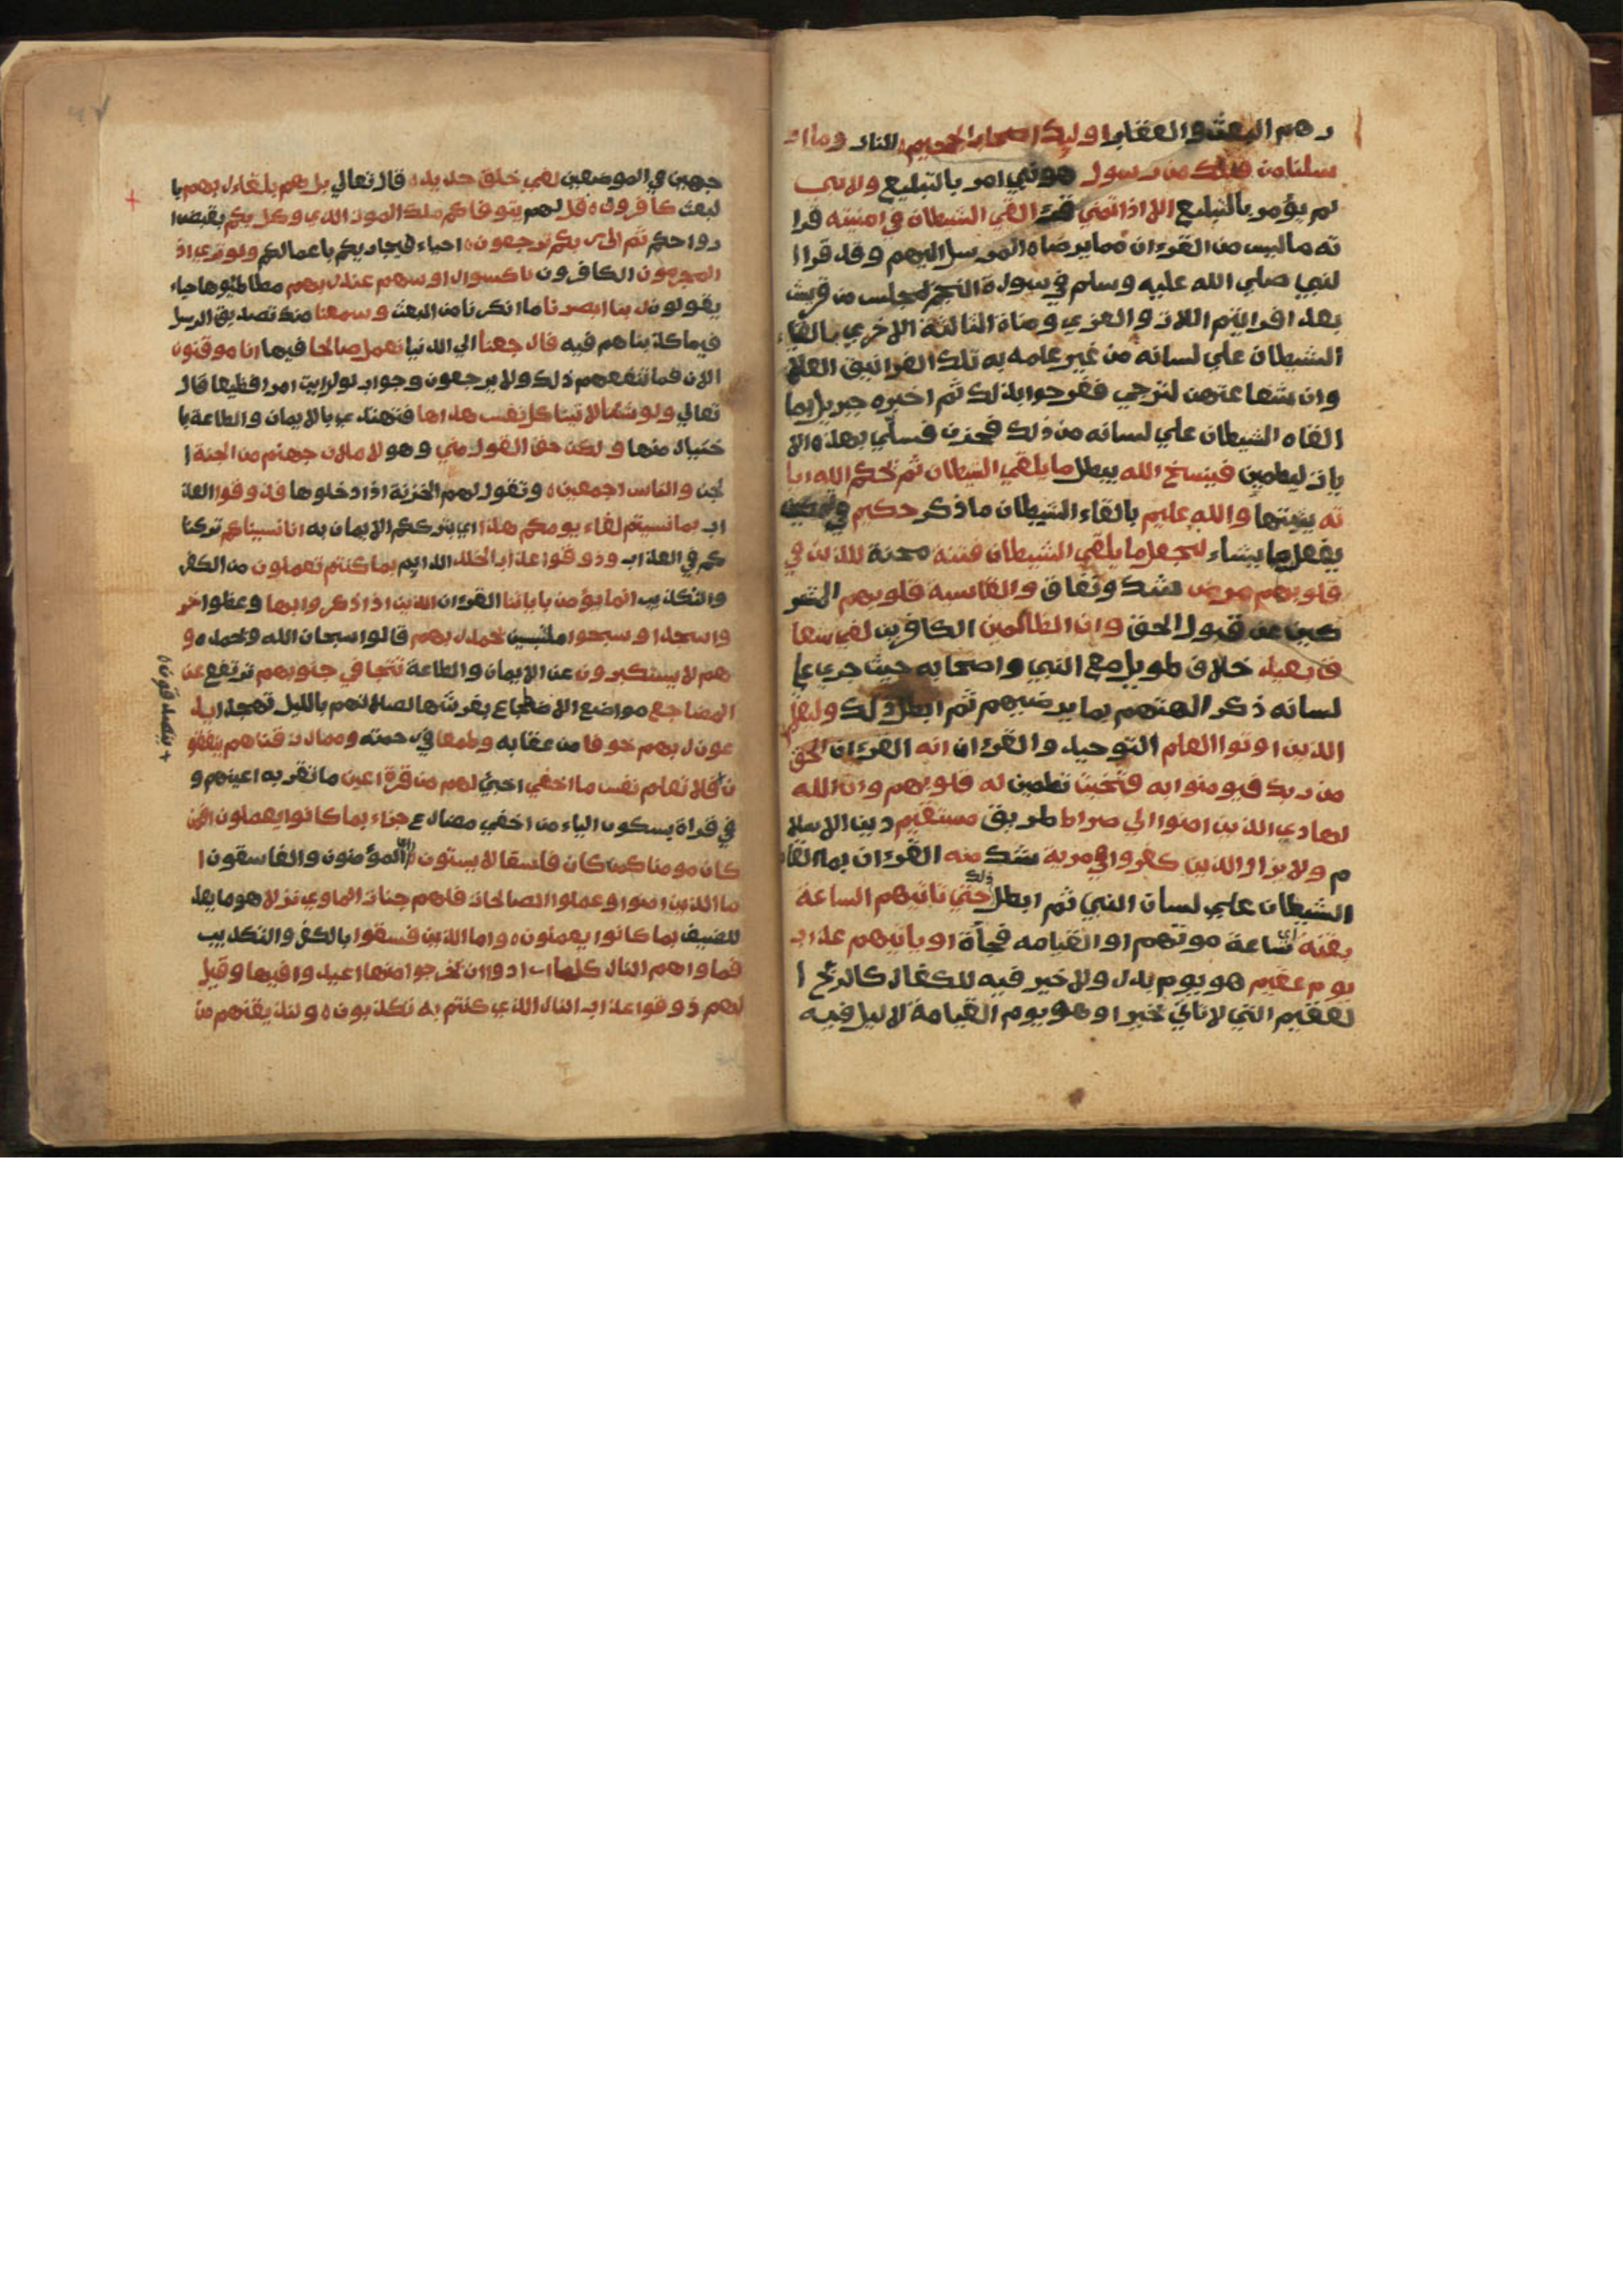 رهم البعث والعقاب اوليك اصحاب الجحيم النار وما ار
سلنا من قبلك من رسول هو نبي امر بالتبليغ ولا نبي
لم يؤمر بالتبليغ الا اذا تمني قرء القي الشيطان في امنيته قرا
ته ما ليس من القرءان مما يرضاه المرسل اليهم وقد قرا ا
لنبي صلي الله عليه وسلم في سورة النجم بمجلس من قريش
بعد افرايتم اللات والعزي ومناة الثالثة الاخري بالقاء
الشيطان علي لسانه من غير علمه به تلك الغرانيق العلا
وان شفاعتهن لترجي ففرحوا بذلك ثم اخبره جبريل بما
القاه الشيطان علي لسانه من ذلك فحزن فسلّي بهذه الا
يات ليطمين فينسخ الله يبطل ما يلقي الشيطان ثم يحكم الله ايا
ته يثبتها والله عليم بالقاء الشيطان ما ذكر حكيم في تمكين
يفعل ما يشاء ليجعل ما يلقي الشيطان فتنة محنة للذين في
قلوبهم مرض شك ونفاق والقاسية قلوبهم المشر
كين عن قبول الحق وان الظالمين الكافرين لفي شقا
ق بعيد خلاف طويل مع النبي واصحابه حيث جري علي
لسانه ذكر الهتهم بما يرضيهم ثم ابطل ذلك وليعلم
الذين اوتوا العلم التوحيد والقرءان انه القرءان الحق
من ربك فيومنوا به فتخبت تطمين له قلوبهم وان الله
لهادي الذين امنوا الي صراط طريق مستقيم دين الاسلا
م ولا يزال الذين كفروا في مرية شك منه القرءان بما القاه
الشيطان علي لسان النبي ثم ابطل ذلك حتي تاتيهم الساعة
بغتة اي ساعة موتهم او القيامه فجأة او ياتيهم عذاب
يوم عقيم هو يوم بدر ولا خير فيه للكفار كالريح ا
لعقيم التي لا تاتي بخير او هو يوم القيامة لا ليل فيه
جهين في الموضعين لفي خلق جديد ه قال تعالي بل هم بلقاء ربهم با
لبعث كافرون ه قل لهم يتوفاكم ملك الموت الذي وكل بكم بقبض ا
رواحكم ثم الي ربكم ترجعون ه احياء فيجازيكم باعمالكم ولو تري اذ
المجرمون الكافرون ناكسوا رءوسهم عند ربهم مطاطئوها حياء
يقولون ربنا ابصرنا ما انكرنا من البعث وسمعنا منك تصديق الرسل
فيما كذبناهم فيه فارجعنا الي الدنيا نعمل صالحا فيها انا موقنون
الان فما تنفعهم ذلك ولا يرجعون وجواب لو لرايت امرا فظيعا قال
تعالي ولو شئنا لاتينا كل نفس هداها فتهتدي بالايمان والطاعة با
ختيار منها ولكن حق القول مني وهو لاملان جهنم من الجنة ا
لجن والناس اجمعين ه وتقول لهم الخزنة اذا دخلوها فذوقوا العذ
اب بما نسيتم لقاء يومكم هذا اي بترككم الايمان به انا نسيناكم تركنا
كم في العذاب وذوقوا عذاب الخلد الدايم بما كنتم تعملون من الكفر
والتكذيب انما يؤمن باياتنا القرءان الذين اذا ذكروا بها وعظوا خر
وا سجدا وسبحوا متلبسين بحمد ربهم قالوا سبحان الله وبحمده و
هم لا يستكبرون عن الايمان والطاعة تتجافي جنوبهم ترتفع عن
المضاجع مواضع الاضطجاع بفرشها لصلاتهم بالليل تهجدا يد
عون ربهم خوفا من عقابه وطمعا في رحمته ومما رزقناهم ينفقو
ن فلا تعلم نفس ما اخفي اخبئ لهم من قرة اعين ما تقر به اعينهم و
في قراة بسكون الياء من اخفي مضارع جزاء بما كانوا يعملون افمن
كان مومنا كمن كان فاسقا لا يستون اي المؤمنون والفاسقون ا
ما الذين امنوا وعملوا الصالحات فلهم جنات الماوي نزلا هو ما يعد
للضيف بما كانوا يعملون ه واما الذين فسقوا بالكفر والتكذيب
فماواهم النار كلما ارادوا ان يخرجوا منها اعيدوا فيها وقيل
لهم ذوقوا عذاب النار الذي كنتم به تكذبون ه ولنذيقنهم من
يتصدقون ه